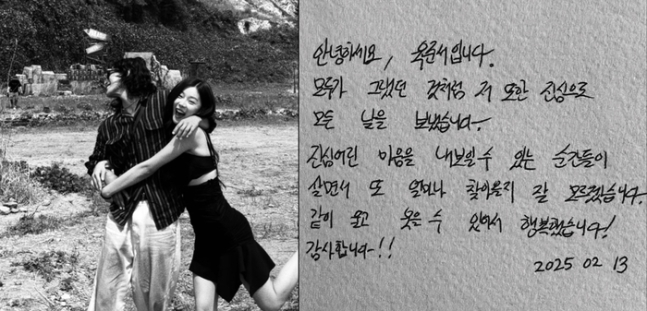 안녕하세요, 옥준서입니다.
모두가 그랬던 것처럼 저 또한 진심으로
모든 날을 보냈습니다.
진심어린 마음을 내보일 수 있는 순간들이
살면서 또 얼마나 찾아올지 잘 모르겠습니다.
같이 울고 웃을 수 있어서 행복했습니다!
감사합니다-!!
2025 02 13